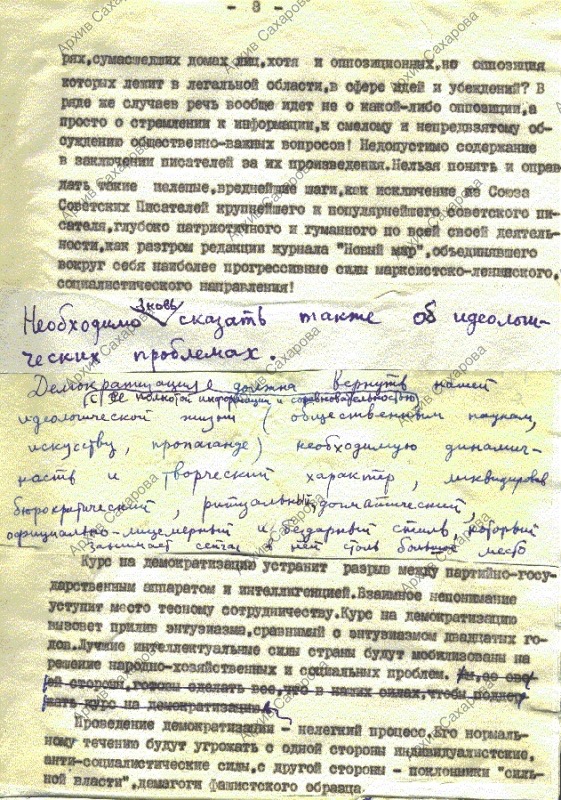 - 8 -
рях,сумасшедших домах лиц,хотя и оппозиционных,но оппозиция
которых лежит в легальной области,в сфере идей и убеждений? В
ряде же случаев речь вообще идет не о какой-либо оппозиции,а
просто о стремлении к информации,к смелому и непредвзятому об-
суждению общественно-важных вопросов! Недопустимо содержание
в заключении писателей за их произведения.Нельзя понять и оправ
дать такие нелепые,вреднейшие шаги,как исключение из Союза
Советских Писателей крупнейшего и популярнейшего советского пи-
сателя,глубоко патриотичного и гуманного по всей своей деятель-
ности,как разгром редакции журнала "Новый мир",объединявшего
вокруг себя наиболее прогрессивные силы марксистско-ленинского,
социалистического направления!
вновь
Необходимо сказать также об идеологи-
ческих проблемах.
Демократизация должна вернуть нашей
(с ее полнотой информации и соревновательностью)
идеологической жизни (общественным наукам,
искусству, пропаганде) необходимую динамич-
ность и творческий характер, ликвидировав
бюрократический, ритуальный, догматический,
официально-лицемерный и бездарный стиль, который
занимает сейчас в ней столь большое место
Курс на демократизацию устранит разрыв между партийно-госу-
дарственным аппаратом и интеллигенцией.Взаимное непонимание
уступит место тесному сотрудничеству.Курс на демократизацию
вызовет прилив энтузиазма,сравнимый с энтузиазмом двадцатых го-
дов.Лучшие интеллектуальные силы страны будут мобилизованы на
решение народно-хозяйственных и социальных проблем. Мы,со сво-
ей стороны,готовы сделать все,что в наших силах,чтобы поддер
жать курс на демократизацию
Проведение демократизации - нелегкий процесс.Его нормаль-
ному течению будут угрожать с одной стороны индивидуалистские,
анти-социалистические силы,с другой стороны - поклонники "силь-
ной власти",демагоги фашистского образца.
Архив Сахарова